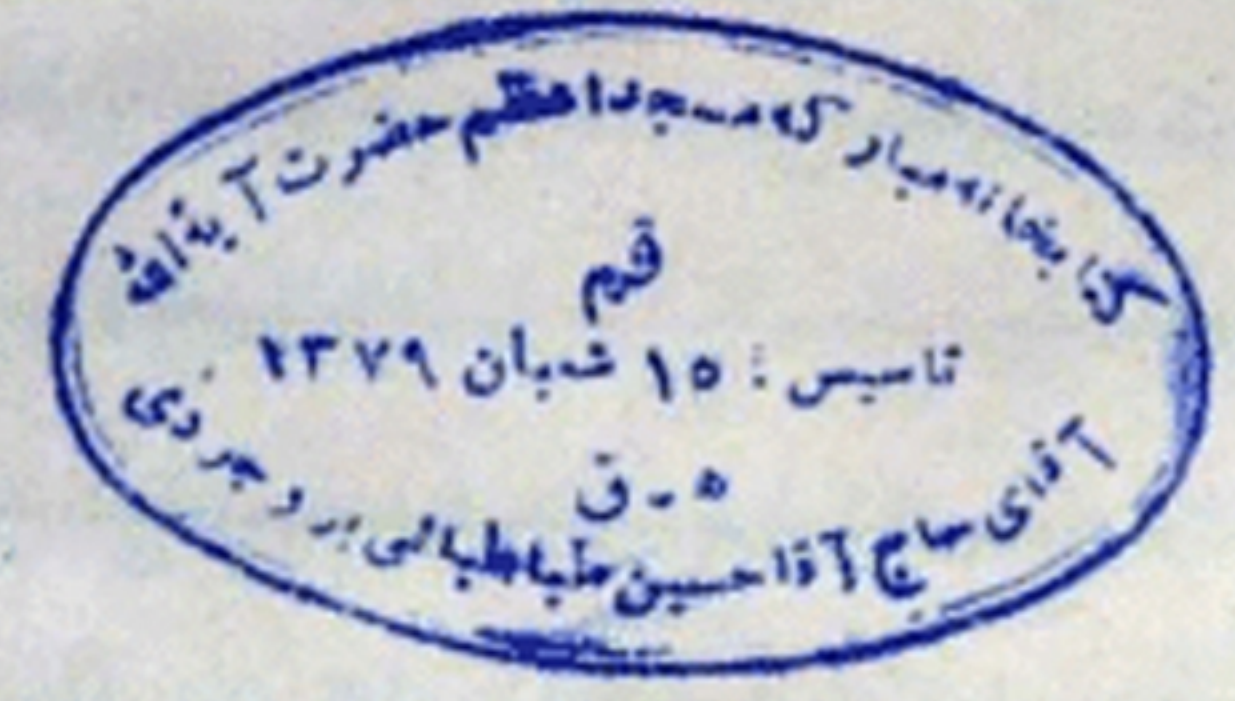 کتابخانه مبارکه مسجد اعظم حضرت آیة الله
قم
تاسیس : ۱۵ شعبان ۱۳۷۹
ه ـ ق
آقای حاج آقا حسین طباطبائی بروجردی